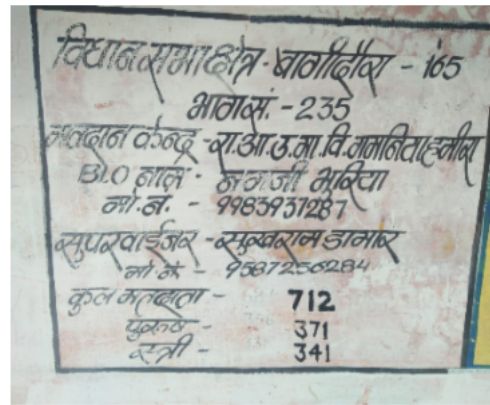 विधान सभा क्षेत्र - बागीदौरा - 165
भाग सं. - 235
मतदान केन्द्र - रा.आ.उ.मा.वि.गमनिया हमीरा
BLO नाम - नगजी भूरिया
मो.न. - 9983931287
सुपरवाईजर - सुखराम डामोर
मो.नं. - 9587256284
कुल मतदाता - 712
पुरुष - 371
स्त्री - 341